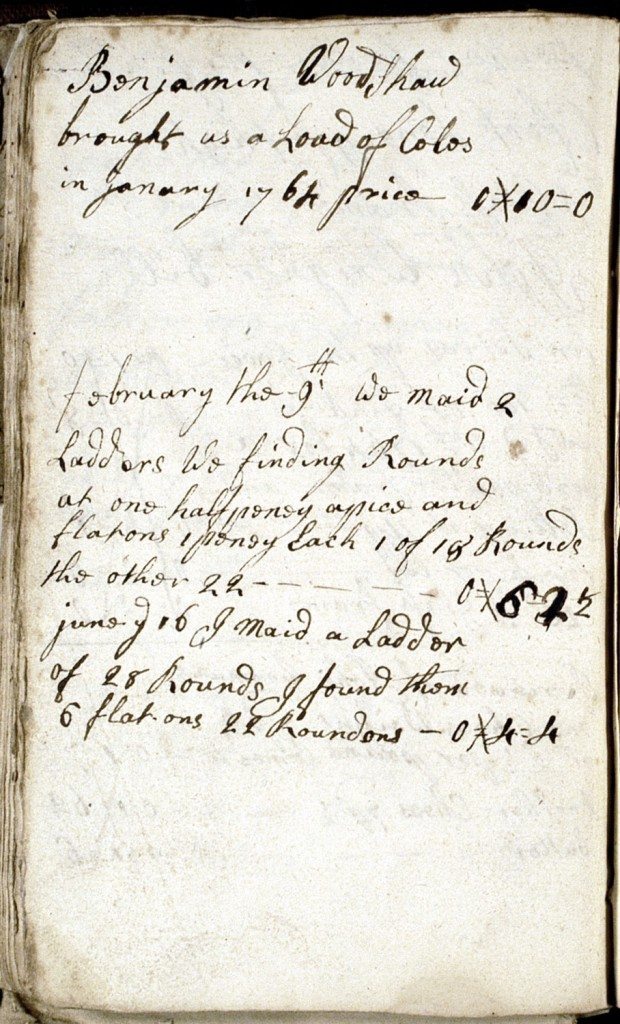 Benjamin Woodshaw
brought us a Load of Coles
in Janary 1764 price 0=10=0
february the 9th we maid 2
Ladders We finding Rounds
at one halfpeney apice and
flations 1 peney Each 1 of 18 Rounds
the other 22 - - - - - 0=
june ye 16 I maid a Ladder
of 28 Rounds I found them
6 flations 22 Roundens - 0=4=4